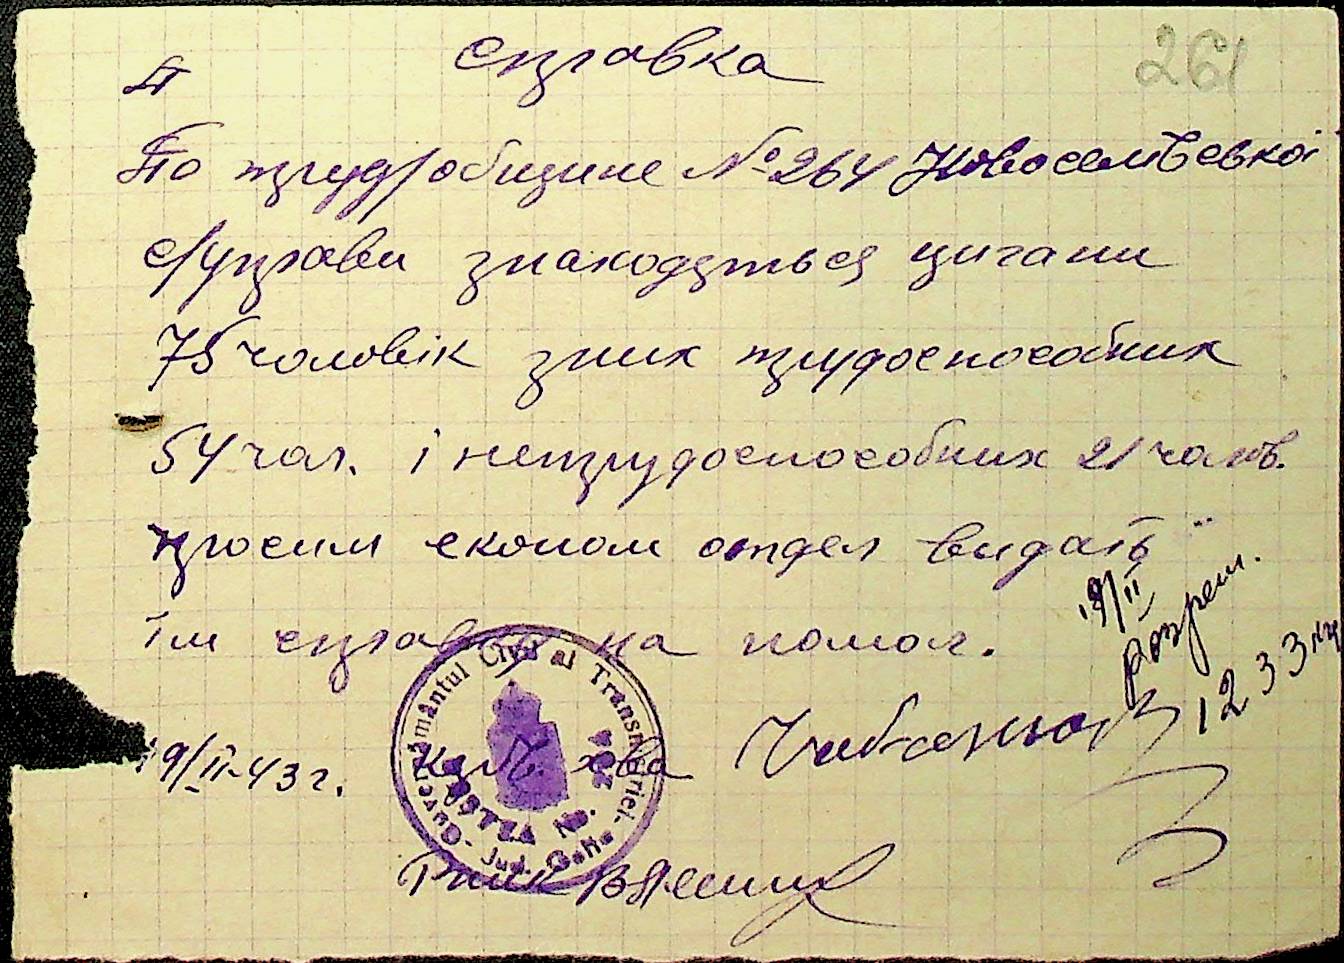 261
справка
По труд/общине № 264 Новоселівської
с/управи знаходяться цигани
75 чоловік з них трудоспособних
54 чол. і нетрудоспособних 21 чолов.
просим економ отдел видать
їм справку на помол.
19/II
Разреш.
1233 кг
19/II-43 г. хва
Guvernământul Civil al Transnistriei
Jud. Golta